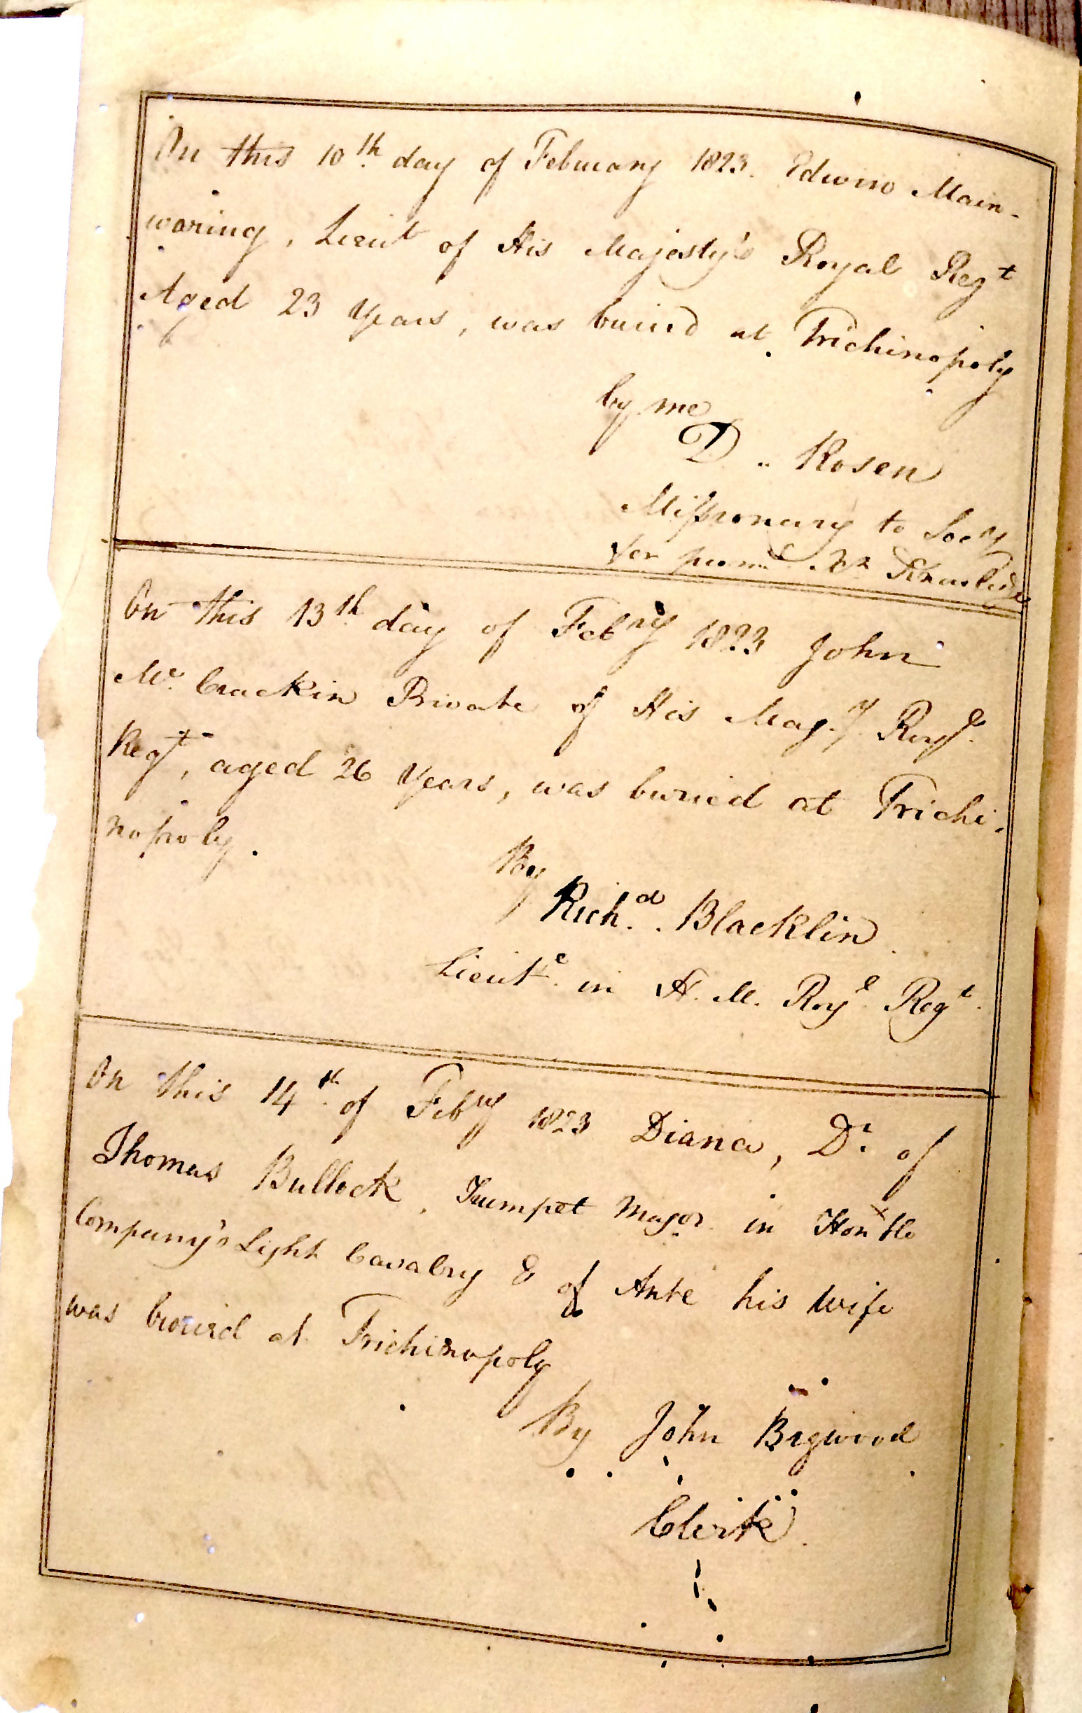 On this 10th day of February 1823. Edwin Main-
waring, Lieut of His Majesty's Royal Regt
Aged 23 Years, was buried at Trichinopoly
by me
D.. Rosen
Missionary to Socy
for prom Xn Knowledge
On this 13th day of Febry 1823 John
Mc. Crackin Private of His Maj.y Royl.
Regt, aged 26 Years, was buried at Trichi-
nopoly.
By
Richd. Blacklin
Lieutt. in H. M. Royl Regt.
On this 14th of Feby 1823 Diana, Dr of
Thomas Bullock, Trumpet Major in Honble
Company's Light Cavalry & of his Wife
was buried at Trichinopoly
By John Bigwood
Clerk